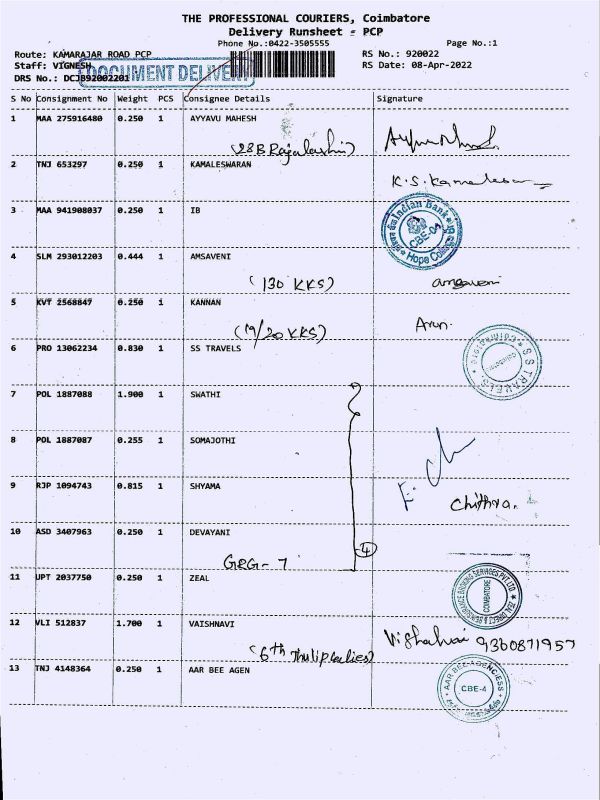 THE PROFESSIONAL COURIERS, Coimbatore
Delivery Runsheet - PCP
Phone No.:0422-3505555
Page No.:1
Route: KAMARAJAR ROAD PCP
RS No.: 920022
Staff: VIGNESH
RS Date: 08-Apr-2022
DRS No.: DCJB92002201
DOCUMENT DELIVERY
S No Consignment No Weight PCS Consignee Details Signature
1 MAA 275916480 0.250 1 AYYAVU MAHESH
(28B Rajalashmi)
2 TNJ 653297 0.250 1 KAMALESWARAN
K.S. Kamalesan
3 MAA 941908037 0.250 1 IB
Indian Bank
CBE-04
Hope College
4 SLM 293012203 0.444 1 AMSAVENI
(130 KKS) amsaveni
5 KVT 2568847 0.250 1 KANNAN
(19/20 KKS) Arun.
6 PRO 13062234 0.830 1 SS TRAVELS
S S TRAVELS
7 POL 1887088 1.900 1 SWATHI
8 POL 1887087 0.255 1 SOMAJOTHI
9 RJP 1094743 0.815 1 SHYAMA
Chithra.
10 ASD 3407963 0.250 1 DEVAYANI
4
GRG-7
11 UPT 2037750 0.250 1 ZEAL
COIMBATORE
12 VLI 512837 1.700 1 VAISHNAVI
9360871957
(6th
13 TNJ 4148364 0.250 1 AAR BEE AGEN
AAR BEE AGENCIESS
CBE-4